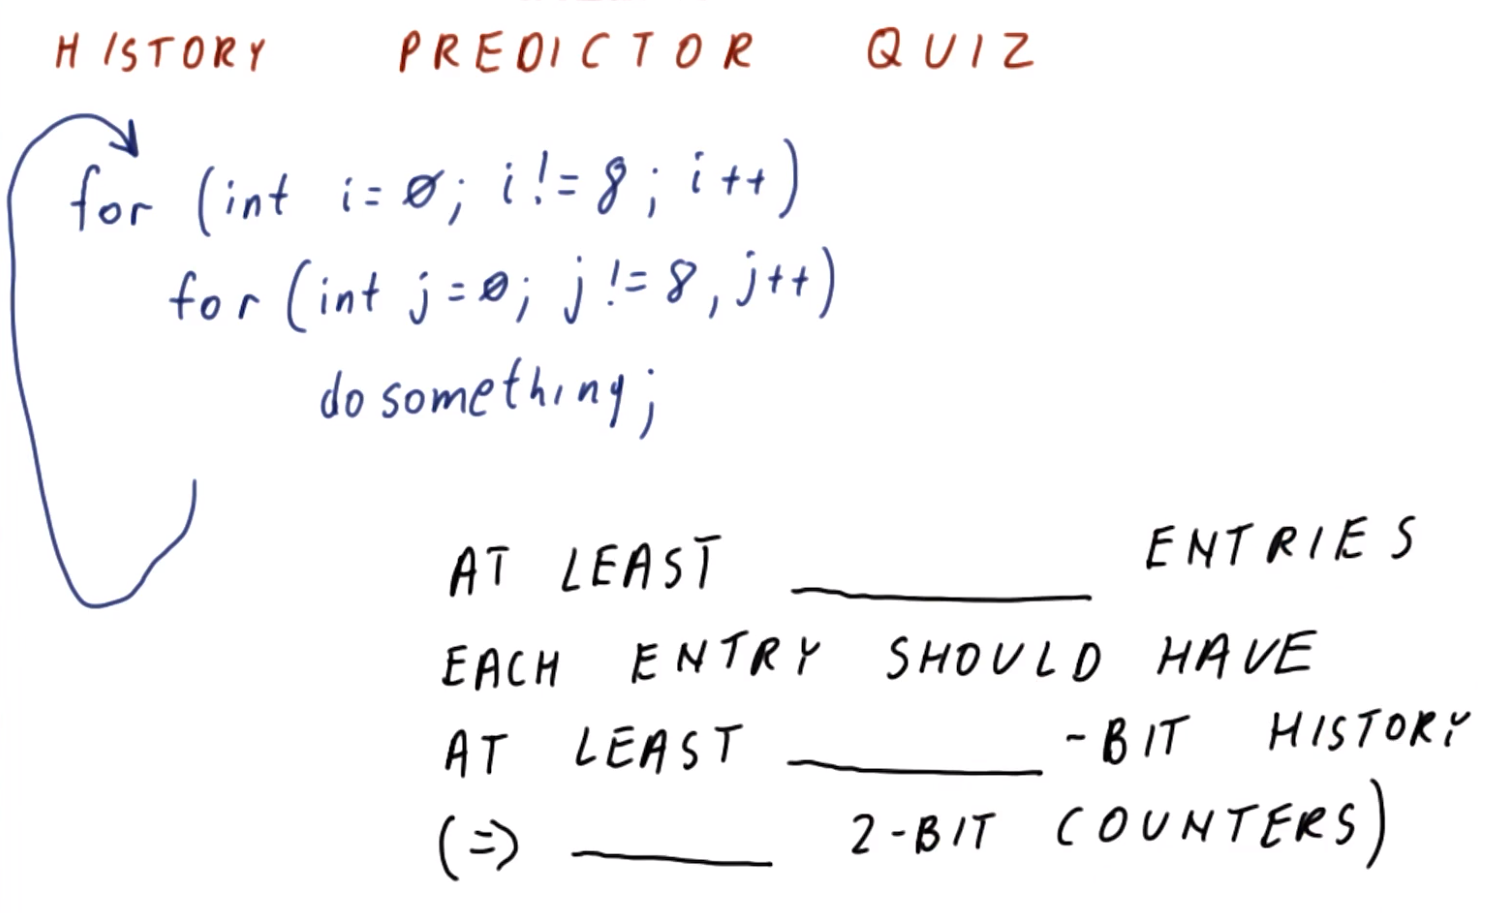 HISTORY PREDICTOR QUIZ
for (int i=0; i!=8; i++)
for (int j=0; j!=8, j++)
do something;
AT LEAST ______ ENTRIES
EACH ENTRY SHOULD HAVE
AT LEAST ______ -BIT HISTORY
(=> ______ 2-BIT COUNTERS)